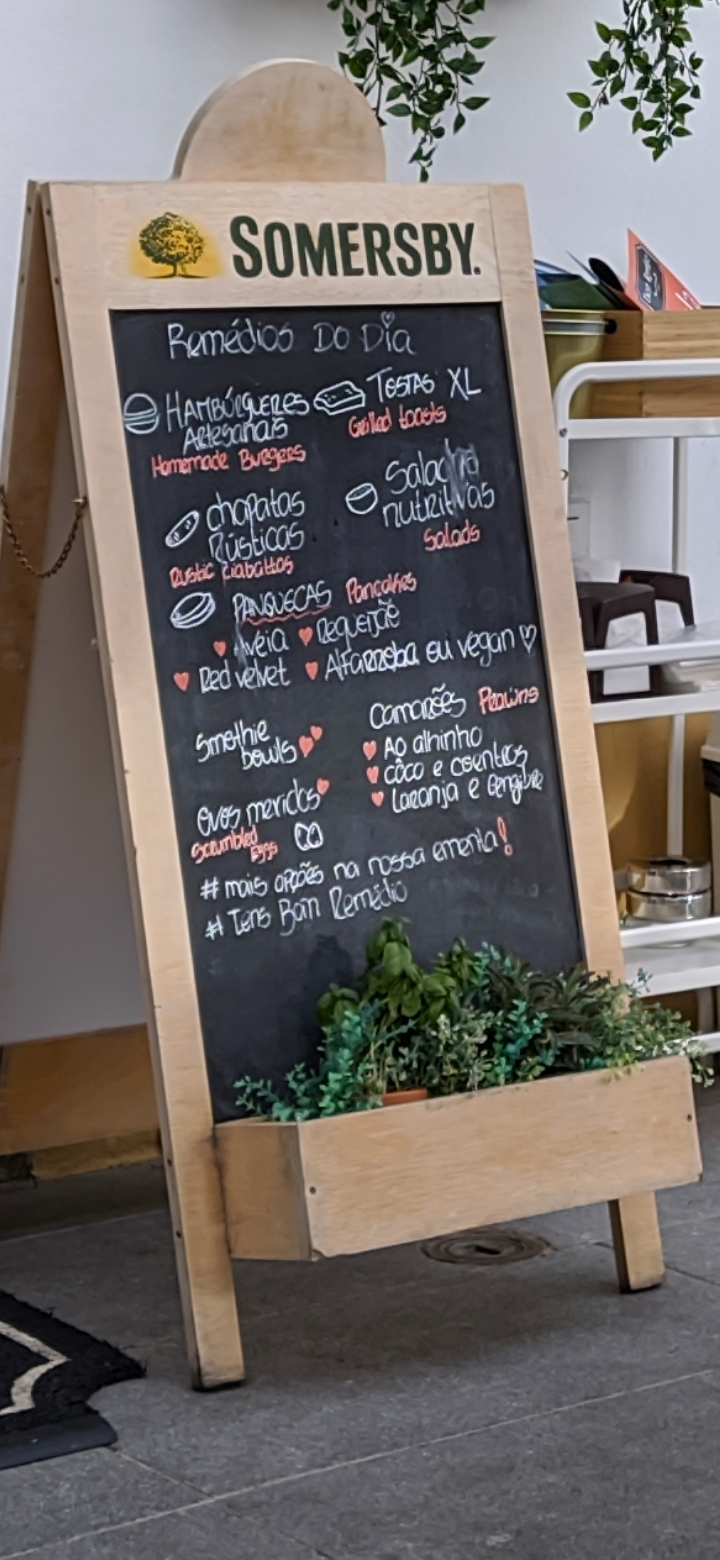 SOMERSBY.
Remédios Do Dia
HAMBÚRGUERES
Artesanais
Homemade Burgers
TOSTAS XL
Grilled toasts
chapatas
Rústicas
Rustic ciabattas
Saladas
nutritivas
Salads
PANQUECAS Pancakes
Aveia
Requeijão
Red velvet
Alfarroba ou vegan
Smothie
bowls
Camarões Prawns
Ao alhinho
côco e coentros
Laranja e Gengibre
Ovos mexidos
Scrambled
Eggs
# mais opções na nossa ementa!
# Tens Bom Remédio